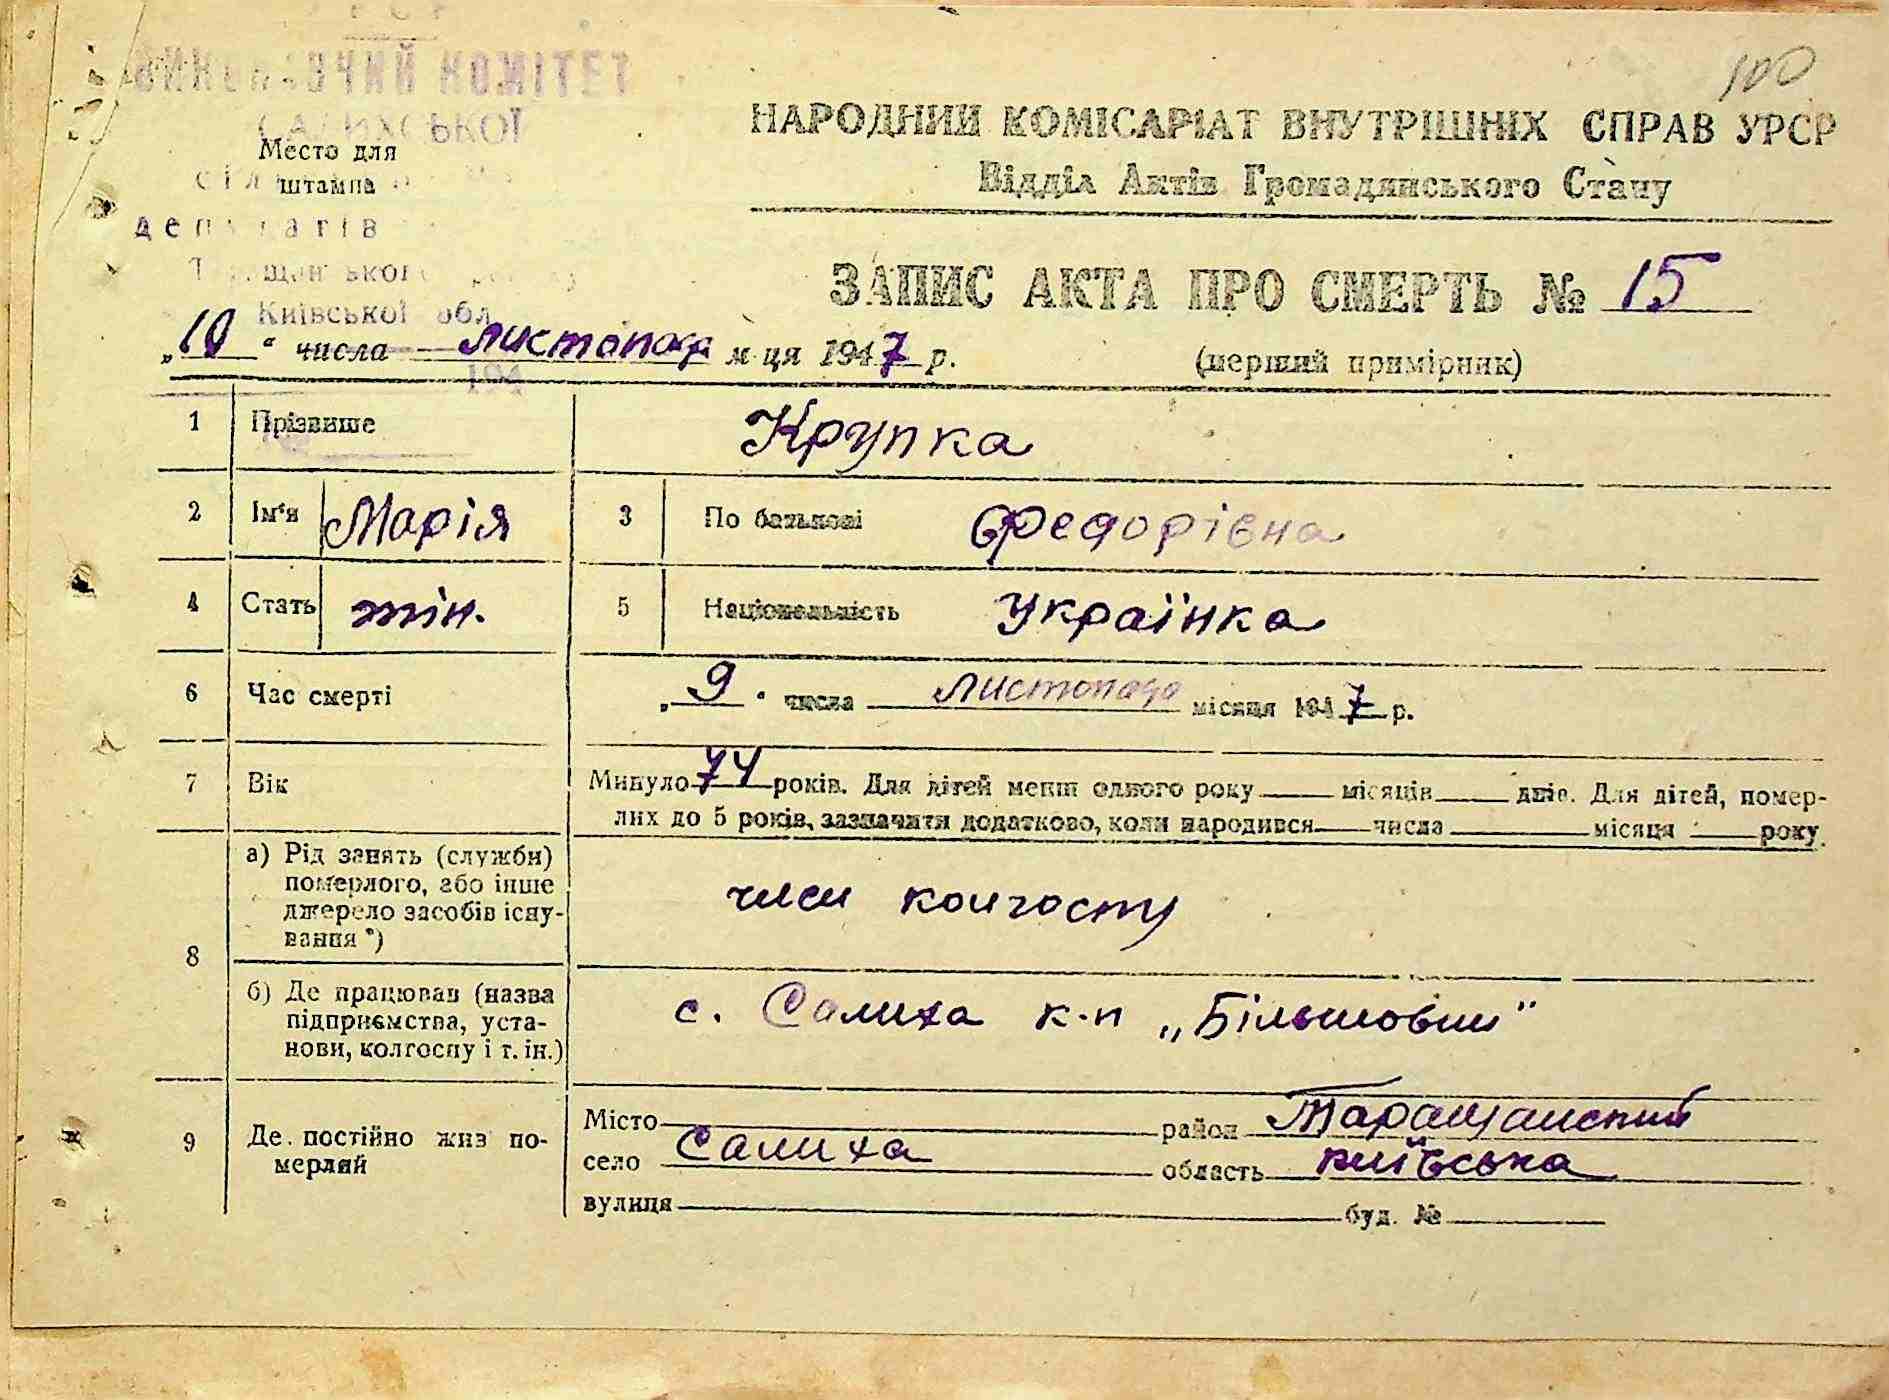 РСР
ВИКОНАВЧИЙ КОМІТЕТ
САЛИХСЬКОЇ
Место для
штампа
депутатів
Київської обл.
194
100
НАРОДНИЙ КОМІСАРІАТ ВНУТРІШНІХ СПРАВ УРСР
Відділ Актів Громадянського Стану
ЗАПИС АКТА ПРО СМЕРТЬ № 15
„10“ числа листопада м-ця 1947 р. (перший примірник)
1 Прізвище Крупка
2 Ім'я Марія 3 По батькові Федорівна
4 Стать жін. 5 Національність Українка
6 Час смерті „9“ числа листопада місяця 1947 р.
7 Вік Минуло 74 років. Для дітей менш одного року місяців днів. Для дітей, помер-
лих до 5 років, зазначити додатково, коли народився числа місяця року.
8 а) Рід занять (служби)
померлого, або інше
джерело засобів існу-
вання *)
член колгоспу
б) Де працював (назва
підприємства, уста-
нови, колгоспу і т. ін.)
с. Салиха к-п „Більшовик"
9 Де постійно жив по-
мерлий
Місто район Таращанський
село Салиха область Київська
вулиця буд. №